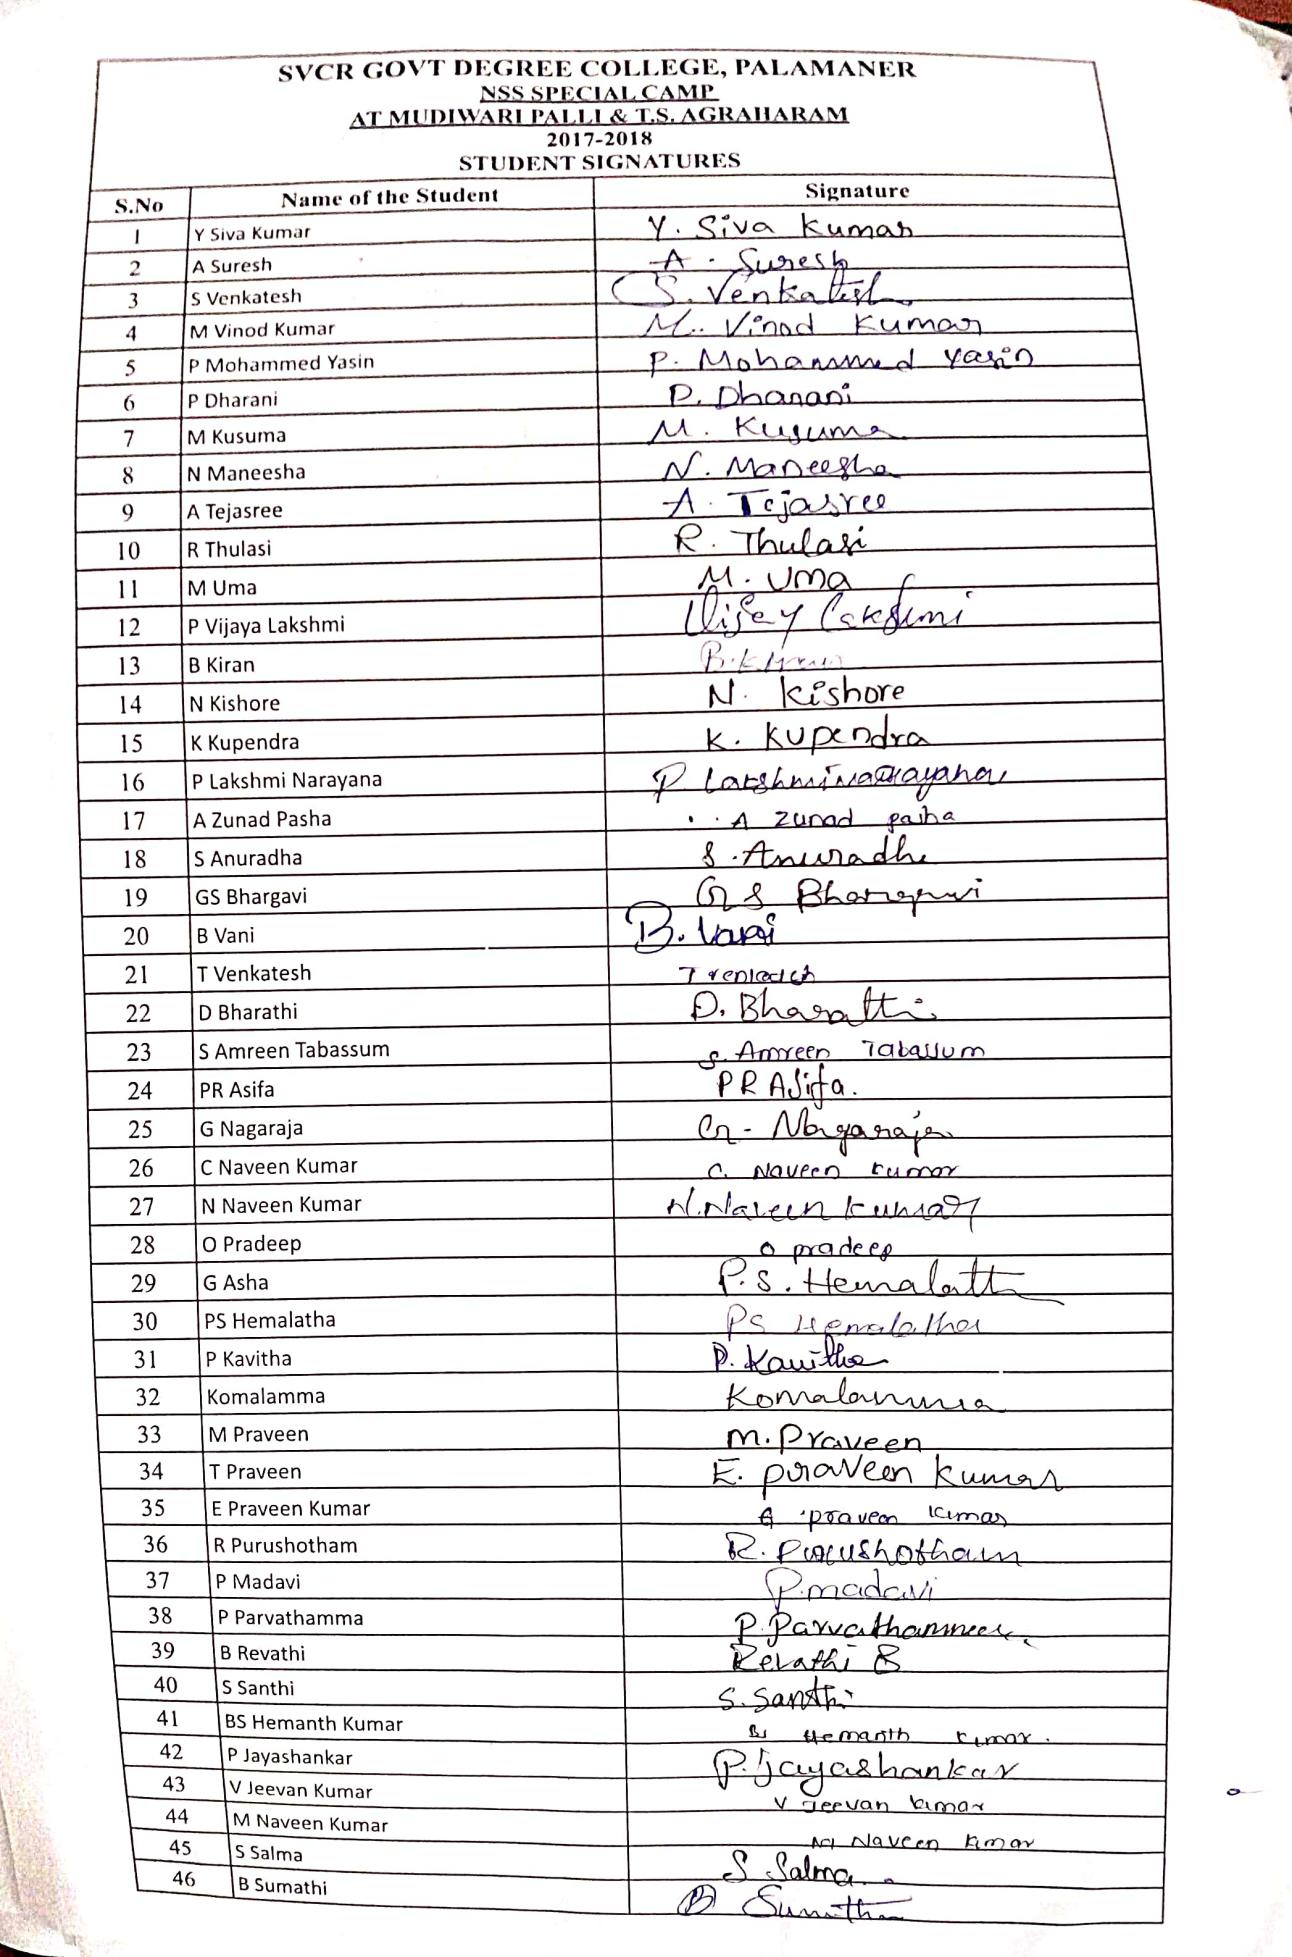 SVCR GOVT DEGREE COLLEGE, PALAMANER
NSS SPECIAL CAMP
AT MUDIWARI PALLI & T.S. AGRAHARAM
2017-2018
STUDENT SIGNATURES
S.No Name of the Student Signature
1 Y Siva Kumar Y. Siva Kumar
2 A Suresh A. Suresh
3 S Venkatesh S. Venkatesh
4 M Vinod Kumar M. Vinod Kumar
5 P Mohammed Yasin P. Mohammed Yasin
6 P Dharani P. Dharani
7 M Kusuma M. Kusuma
8 N Maneesha N. Maneesha
9 A Tejasree A. Tejasree
10 R Thulasi R. Thulasi
11 M Uma M. Uma
12 P Vijaya Lakshmi Vijay Lakshmi
13 B Kiran
14 N Kishore N. Kishore
15 K Kupendra K. Kupendra
16 P Lakshmi Narayana P Lakshminarayana
17 A Zunad Pasha A Zunad pasha
18 S Anuradha S. Anuradha
19 GS Bhargavi G S Bhargavi
20 B Vani B. Vani
21 T Venkatesh T venkatesh
22 D Bharathi D. Bharathi
23 S Amreen Tabassum S. Amreen Tabassum
24 PR Asifa PR Asifa.
25 G Nagaraja G- Nagaraja
26 C Naveen Kumar C. Naveen kumar
27 N Naveen Kumar N. Naveen kumar
28 O Pradeep O pradeep
29 G Asha P.S. Hemalatha
30 PS Hemalatha PS Hemalatha
31 P Kavitha P. Kavitha
32 Komalamma Komalamma
33 M Praveen M. Praveen
34 T Praveen E. praveen kumar
35 E Praveen Kumar praveen kumar
36 R Purushotham R. Purushotham
37 P Madavi P. madavi
38 P Parvathamma P. Parvathamma
39 B Revathi Revathi B
40 S Santhi S. Santhi
41 BS Hemanth Kumar BS Hemanth kumar.
42 P Jayashankar P. Jayashankar
43 V Jeevan Kumar V Jeevan kumar
44 M Naveen Kumar M Naveen kumar
45 S Salma S Salma
46 B Sumathi B